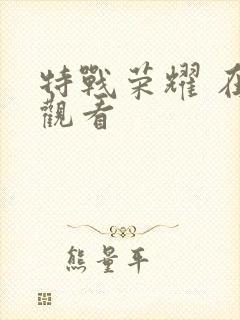 特戰荣耀 在
觀看
熊量平